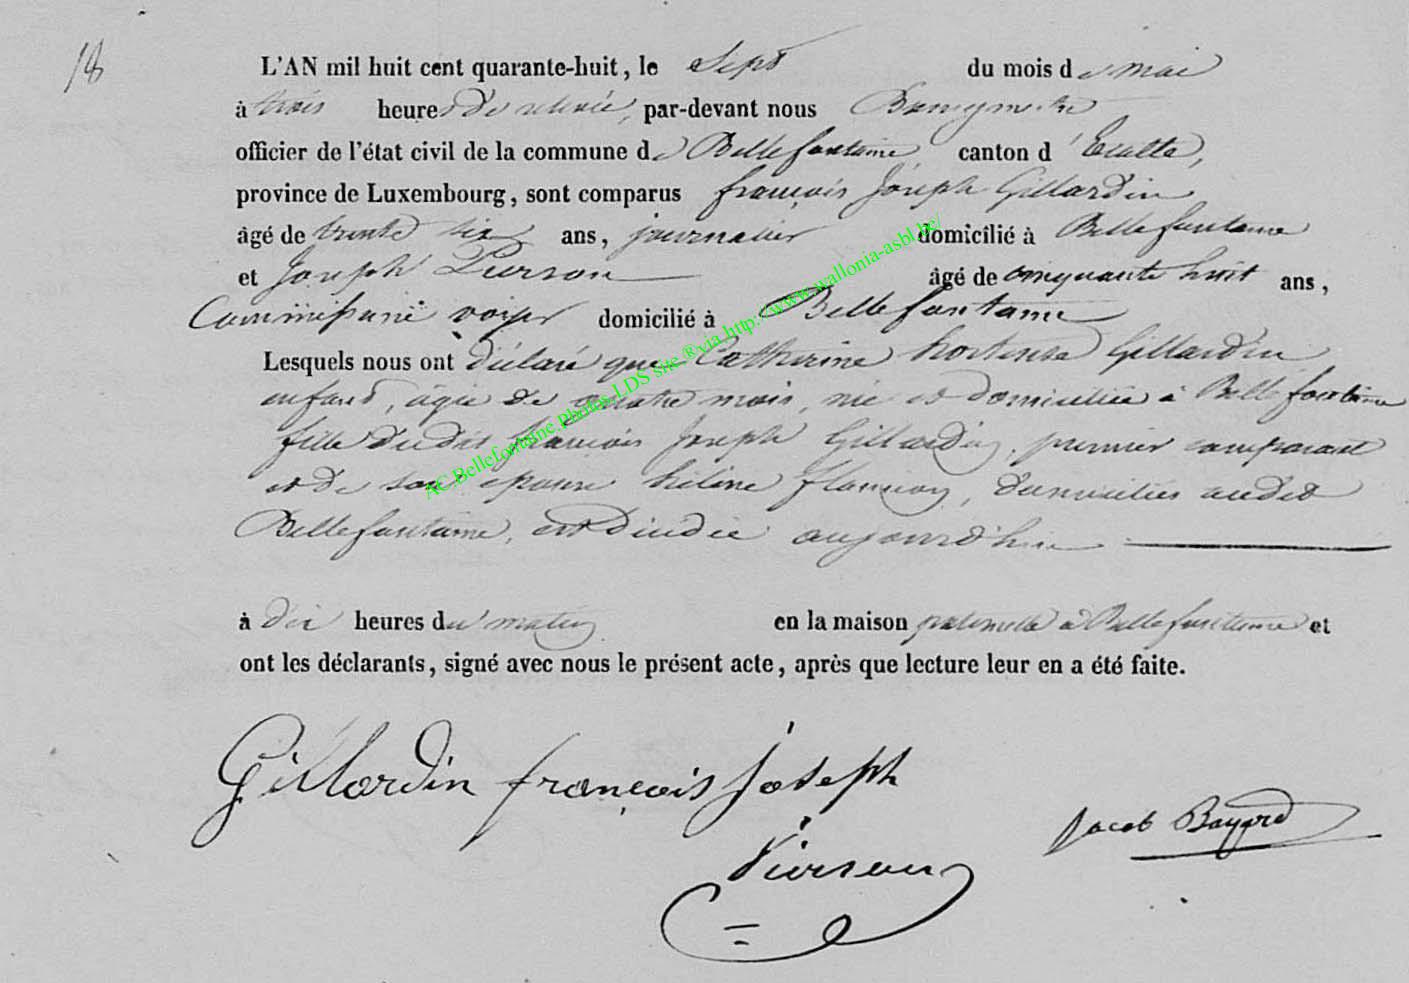 18
L'AN mil huit cent quarante-huit, le Sept du mois de mai
à trois heures de relevée, par-devant nous Bourgmestre
officier de l'état civil de la commune de Bellefontaine, canton d'Etalle,
province de Luxembourg, sont comparus françois Joseph Gillardin
âgé de trente six ans, journalier domicilié à Bellefontaine
et Joseph Pierson âgé de cinquante huit ans,
Commissaire voyer domicilié à Bellefontaine
Lesquels nous ont déclaré que Catherine hortense Gillardin
enfant, âgée de quatre mois, née et domiciliée à Bellefontaine
fille dudit françois Joseph Gillardin, premier comparant
et de son épouse hélène, domiciliés audit
Bellefontaine, est décédée aujourd'hui
à dix heures du matin en la maison paternelle à Bellefontaine et
ont les déclarants, signé avec nous le présent acte, après que lecture leur en a été faite.
Gillardin françois Joseph
Jacob Bayard
Pierson
AC.Bellefontaine.Photos.LDS site ®via http://www.wallonia-asbl.be/